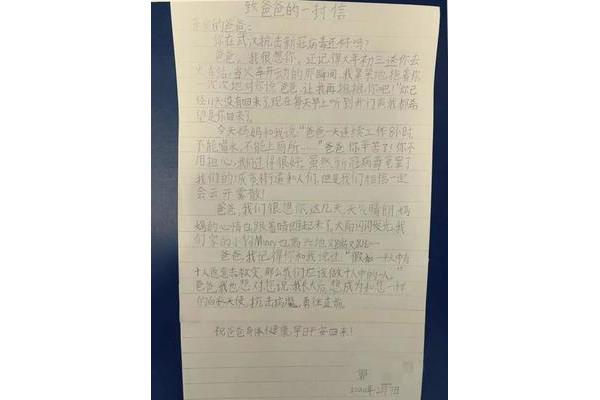 致爸爸的一封信
的爸爸：
你在武汉抗击新冠病毒还好吗？
爸爸，我很想你，还记得大年初三送你去
火车站，当火车开动的那瞬间，我紧紧地抱着你
次次地对你说“爸爸，让我再抱抱你吧！”你已
经天没有回来了，现在每天早上听到开门声我都希
望是你回来了。
今天妈妈和我说：“爸爸一天连续工作8小时，
不能喝水，不能上厕所……”爸爸，你辛苦了！你不
用担心，我们过得很好，虽然新冠病毒笼罩了
我们的城市街道和人们，但是我们相信一定
会云开雾散！
爸爸，我们很想你，这几天，天气晴朗，妈
妈的心情也跟着晴朗起来了，太阳闪闪发光，我
们家的小狗Money也高兴地又蹦又跳…
爸爸，我记得你和我说过：“假如一千人中有
十人愿意去救灾，那么我们应该做十人中的一人。”
爸爸，我也想对您说：我长大后想成为和您一样
的白衣天使，抗击病魔，勇往直前。
祝爸爸身体健康，早日平安回来！
2020年2月日